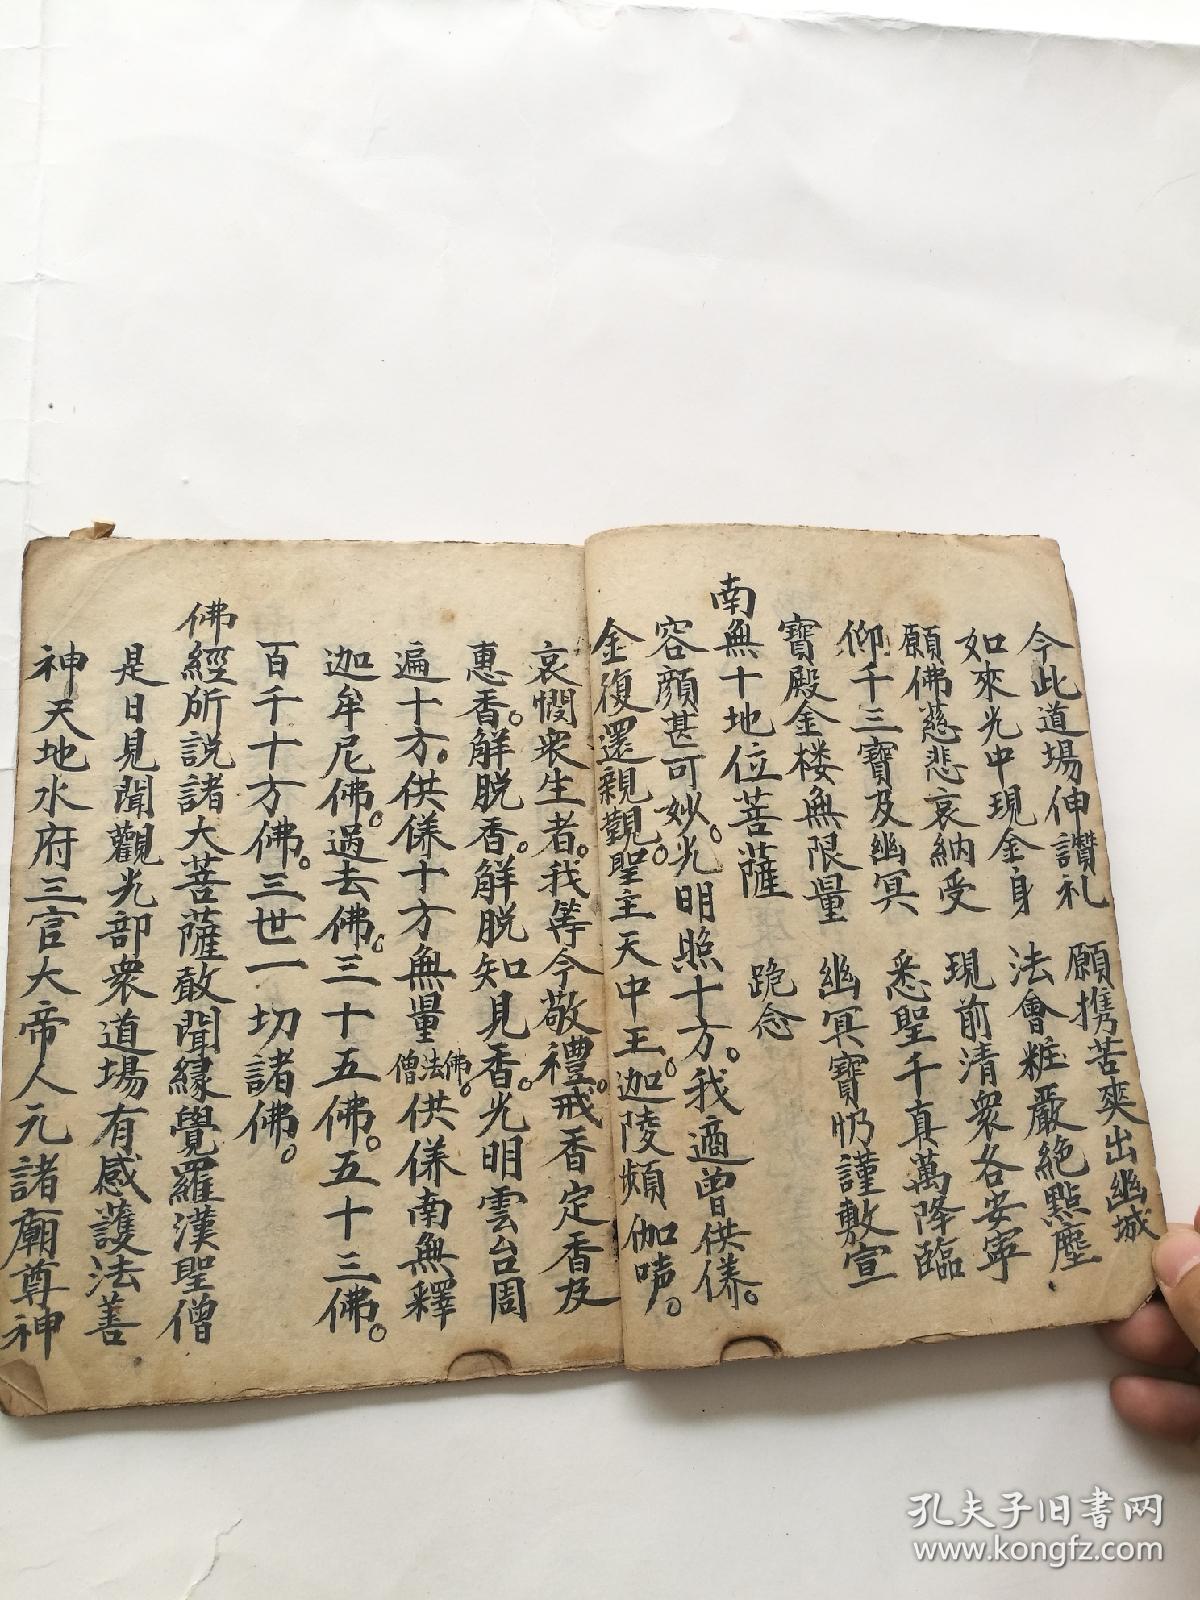 今此道場伸讚礼　願擕苦爽出幽城
如來光中現金身　法會粧嚴絕點塵
願佛慈悲哀納受　現前清衆各安寜
仰千三寶及幽冥　悉聖千真萬降臨
寶殿金楼無限量　幽冥寶𢗅謹敷宣
南無十地位菩薩　跪念
容顔甚可妙。光明照十方。我適曾供佯。
金復還親觀聖主天中王。迦陵頻伽𠴢。
哀憫衆生者。我等今敬禮。戒香定香及
惠香。解脱香。解脱知見香。光明雲台周
遍十方。供佯十方無量佛。法僧供佯南無釋
迦牟尼佛。過去佛。三十五佛。五十三佛。
百千十方佛。三世一切諸佛。
佛經所説諸大菩薩敢聞縁覺羅漢聖僧
是日見聞觀光部衆道場有感護法善
神天地水府三官大帝人元諸廟尊神
孔夫子旧书网
www.kongfz.com